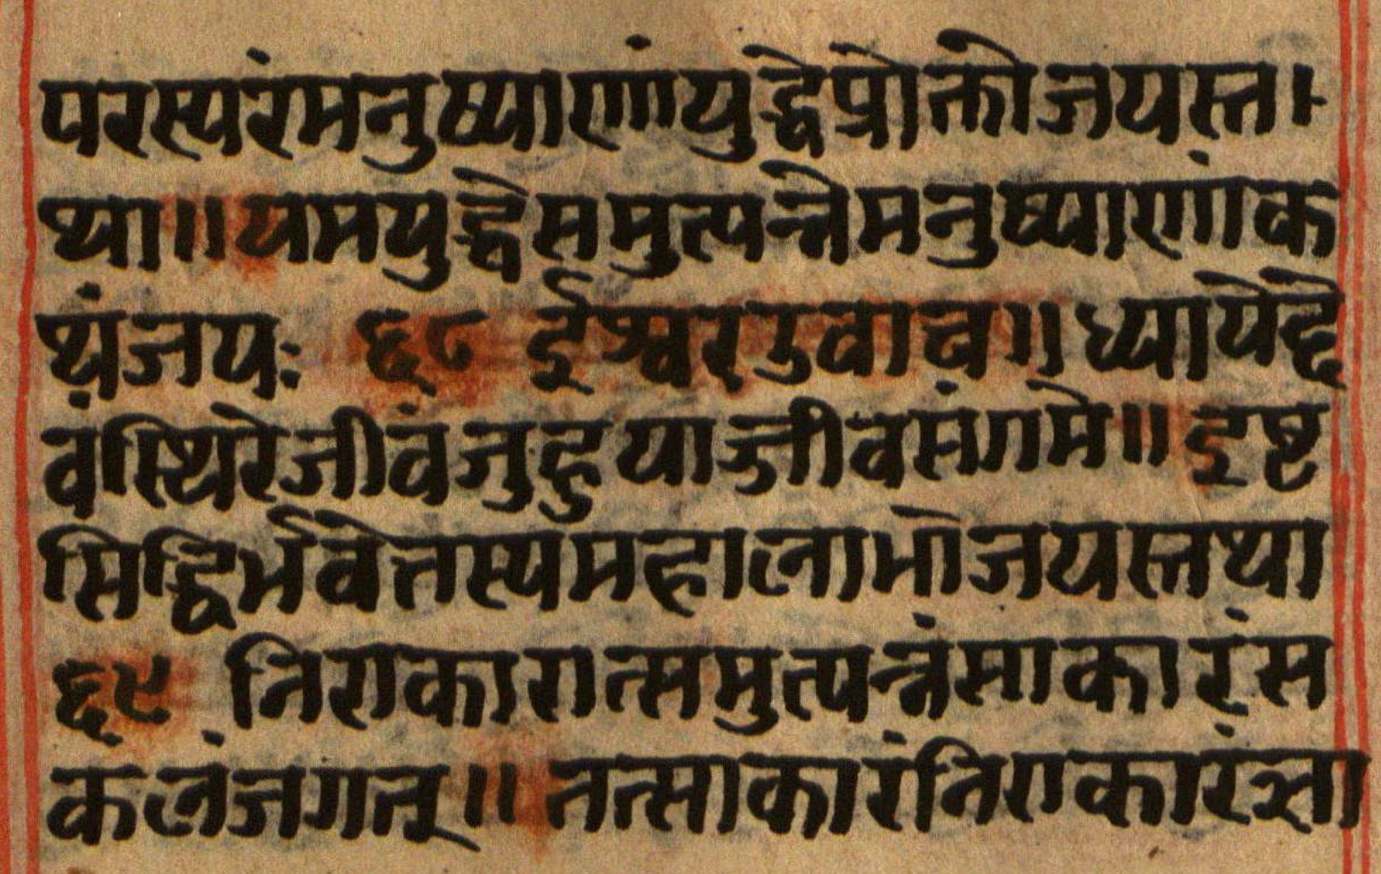 परस्परंमनुष्याणांयुद्धेप्रोक्तोजयस्त्व
था॥यमयुद्धेसमुत्पन्नेमनुष्याणांक
थंजयः ६८ ईश्वरउवाच॥ध्यायेद्दे
वंस्थिरेजीवंजुहुयाज्जीवसंगमे॥इष्ट
सिद्धिर्भवेत्तस्यमहालाभोजयस्तथा
६९ निराकारात्समुत्पन्नंसाकारंस
कलंजगत्॥तत्साकारंनिराकारंज्ञा